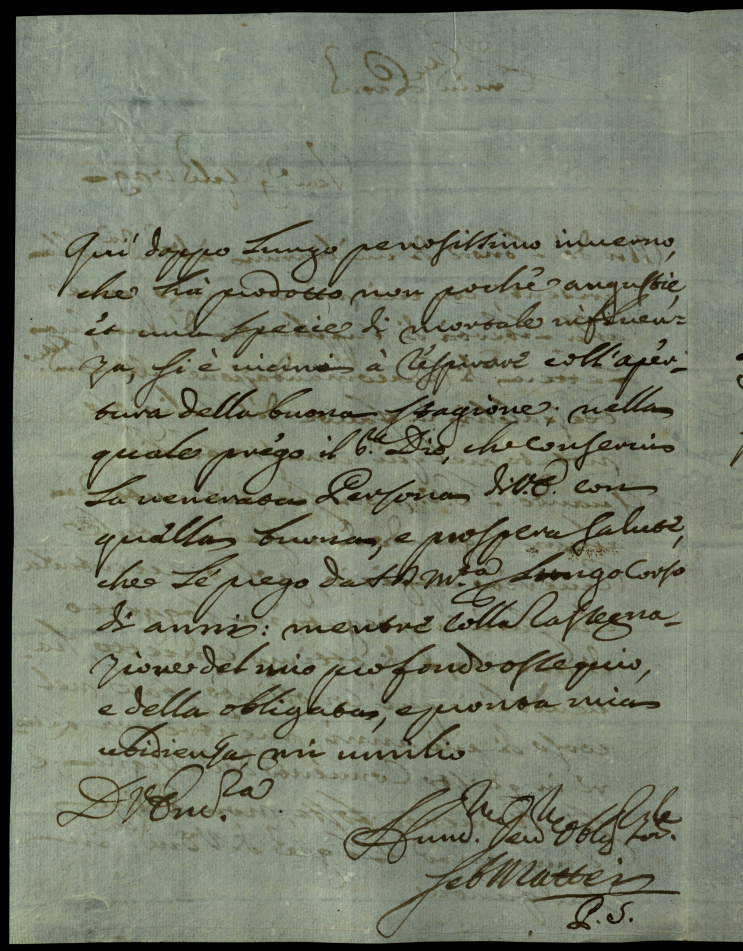 Qui doppo lungo penosissimo inverno,
che hà prodotto non poche angustie,
et una specie di mortale influen=
za, si è vicini à respirare coll'aper-
tura della buona stagione. nella
quale prego il b.to Dio, che conservi
la venerata Persona di V.E. con
quella buona, e prospera salute,
che Le prego da S.D.M.tà Lungo Corso
di anni: mentre colla rassegna-
zione del mio profondo ossequio,
e della obligata, e pronta mia
ubidienza, mi umilio
D V Em.za
Hum. Dev. Oblig. Ser.
Seb Mattei
P. S.